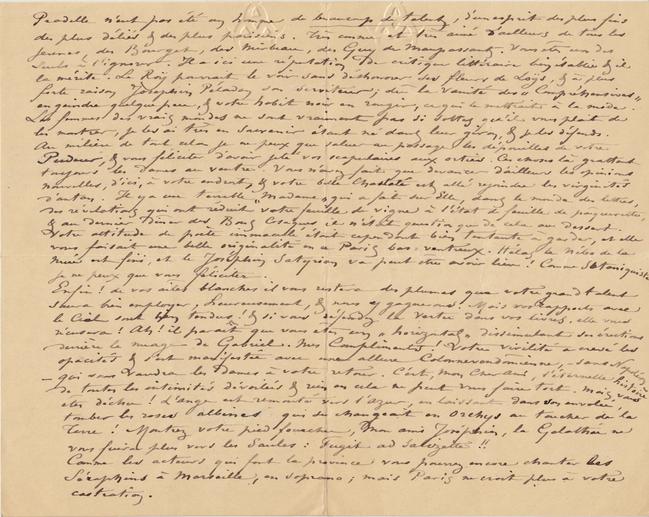 Péadelle n'eut pas été un homme de beaucoup de talent, d'un esprit des plus fins
des plus déliés & des plus parisiens. Très connu et très aimé d'ailleurs de tous les
jeunes, des Bourget, des Mirbeau, des Guy de Maupassant. Vous êtes un des
seuls à l'ignorer. Il a ici une réputation de critique littéraire bien établie & il
la mérite. Le Roy pourrait le voir sans déshonorer ses fleurs de Loys, & à plus
forte raison Joséphin Péladan son serviteur; dût la vanité des
en geindre quelque peu, & votre habit noir en rougir, ce qui le mettrait à la mode.
Les femmes des vrais mondes ne sont vraiment pas si sottes qu'il vous plaît de
les montrer, je les ai très en souvenir étant né dans leur giron, & je les défends.
Au milieu de tout cela je ne peux que saluer au passage les dépouilles de votre
Pudeur, & vous féliciter d'avoir jeté vos scapulaires aux orties. Ces choses là grattent
toujours les dames au ventre. Vous n'avez fait que devancer d'ailleurs les opinions
nouvelles, d'ici, à votre endroit, & votre belle Chasteté est allé rejoindre les virginités
d'antan. Il y a une terrible "Madame" qui a fait sur Elle, dans le monde des lettres,
des révélations qui ont réduit votre feuille de vigne à l'état de feuille de pâquerettes,
& au dernier Dîner des Bons Cosaques, il n'était question que de cela au dessert.
Votre attitude de poète immaculé était cependant bien tentante à garder, et elle
vous faisait une belle originalité en ce Paris bas-ventreux. Hélas, le Nilos de la
Muse est fini, et le Joséphin Satyrion va peut être avoir lieu! Comme Sataniquiste
je ne peux que vous féliciter.
Enfin! de vos ailes blanches il vous restera des plumes que votre grand talent
saura bien employer, heureusement, & nous y gagnerons! Mais vos rapports avec
le Ciel sont bien tendus! & si vous répandez la vertu dans vos livres, elle vous
n'usera! Ah! il paraît que vous êtes un "horizontal" dissimulant ses érections
derrière le nuage de Gabriel. Mes Compliments! Votre virilité a crevé les
opacités & s'est manifestée avec une allure Colonnevendomienne – sans Napoléon
– qui vous vaudra les Dames à votre retour. C'est, mon Cher Ami, l'éternelle histoire
de toutes les intimités dévoilées & rien en cela ne peut vous faire tort. Mais, vous
êtes déchu! L'ange est remonté vers l'Azur, en laissant dans son envolée
tomber les roses albines qui se changeaient en Orchys au toucher de la
Terre! Montrez votre pied fourchu, mon ami Joséphin, la Galathée ne
vous fuira plus vers les Saules: Fugit ad Salizette!!
Comme les acteurs qui font la province vous pourrez encore chanter les
Séraphins à Marseille, en soprano; mais Paris ne croit plus à votre
castration.